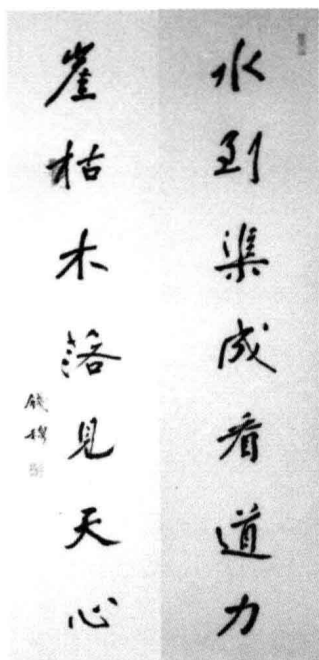 水到渠成看道力
崖枯木落見天心
錢穆